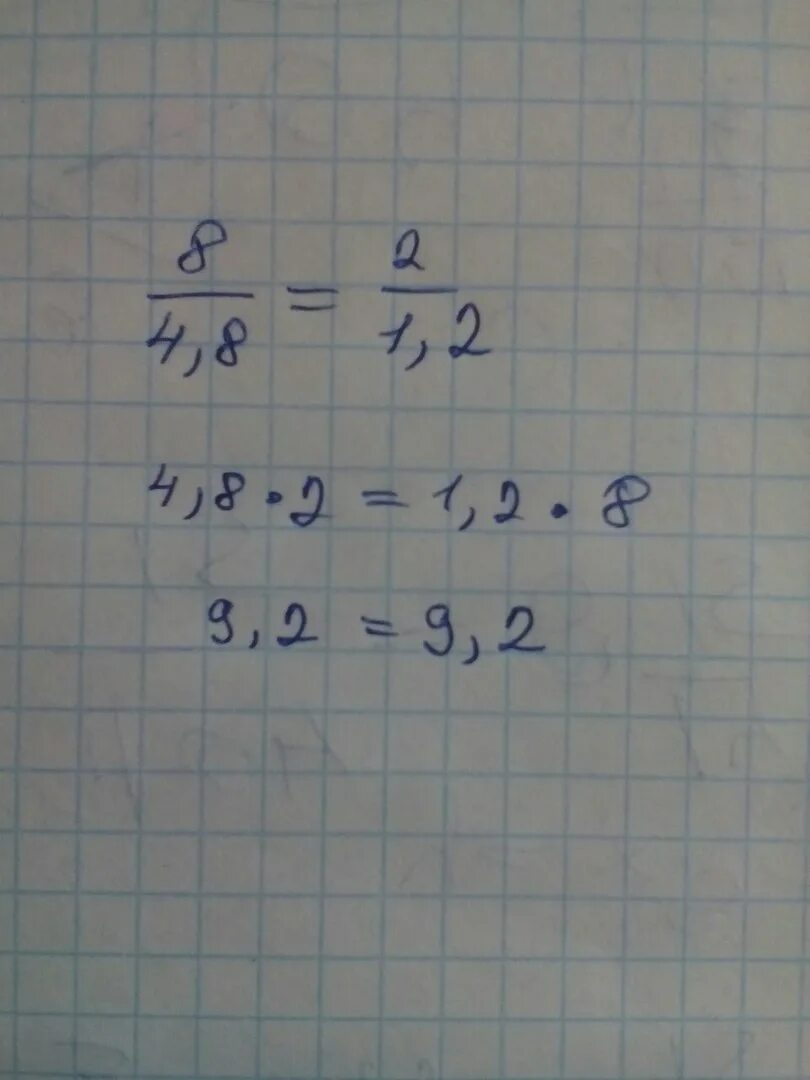 8/4,8 = 2/1,2
4,8 · 2 = 1,2 · 8
9,2 = 9,2